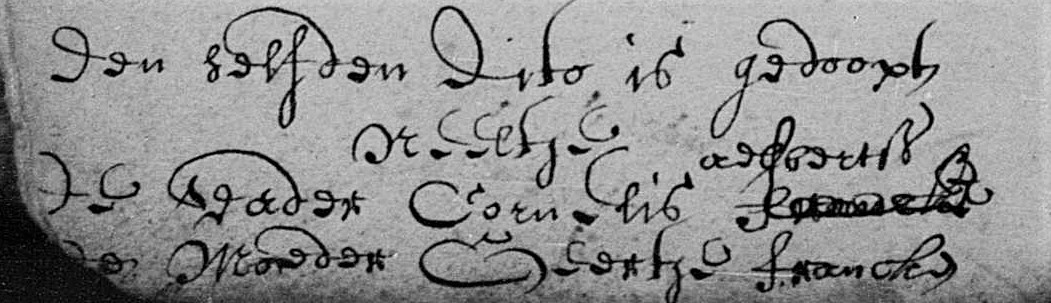 den selfden dito is gedoopt
Neeltje
aelbertss
de Vader Cornelis
de Moeder Geertje francks